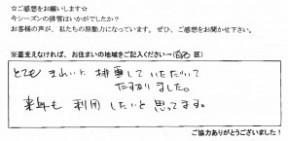 ☆ご感想をお願いします☆
今シーズンの排雪はいかがでしたか？
お客様の声が、私たちの原動力になっています。ぜひ、ご感想をお聞かせ下さい。
※差支えなければ、お住まいの地域をご記入ください→（西 区）
とても きれいに 排雪して いただいて
たすかりました。
来年も 利用 したいと 思ってます。
ご協力ありがとうございました！